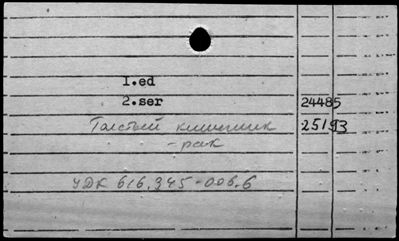 1.ed
2.ser 24485
Толстый кишечник 25193
- рак
УДК 616.345-006.6